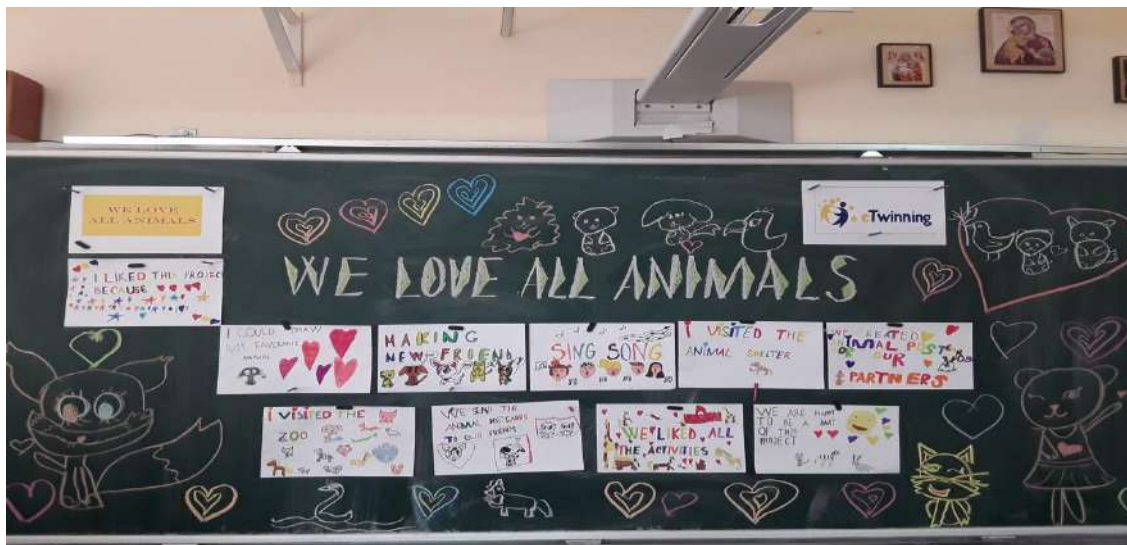 WE LOVE
ALL ANIMALS
eTwinning
I LIKED THIS PROJECT
BECAUSE
WE LOVE ALL ANIMALS
I COULD DRAW
MY FAVOURITE
ANIMAL
MAKING
NEW FRIEND
SING SONG
I VISITED THE
ANIMAL SHELTER
ANIMAL
OUR
PARTNERS
I VISITED THE
ZOO
WE SEND THE
ANIMAL POSTCARDS
TO OUR FRIENDS
WE LIKED ALL
THE ACTIVITIES
WE ARE HAPPY
TO BE A PART
OF THIS
PROJECT